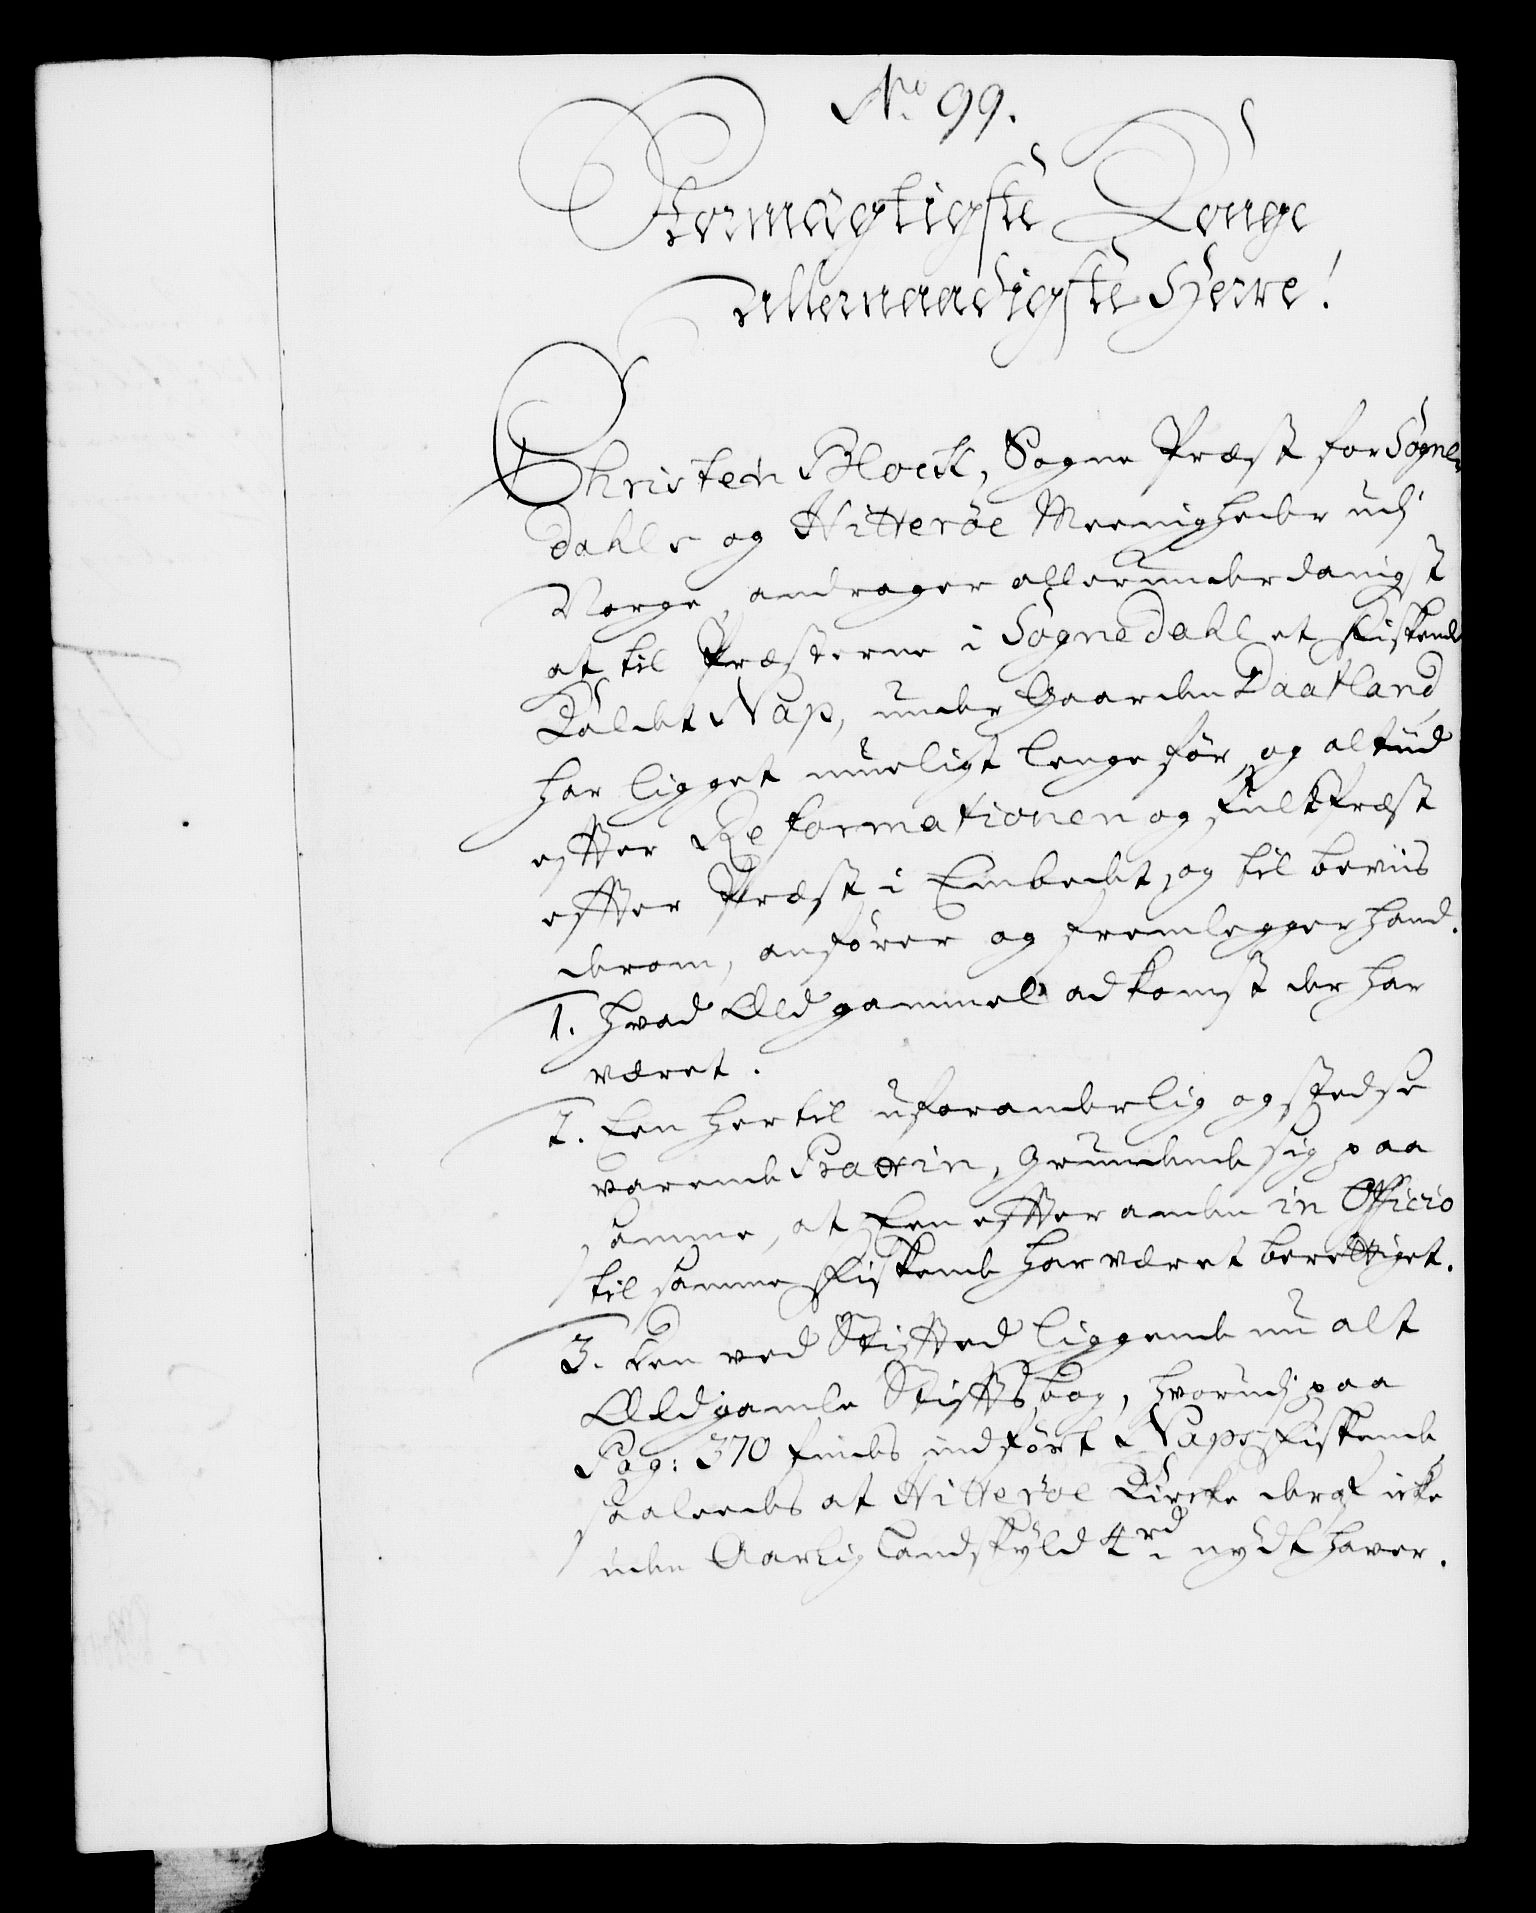 No 99.
Stormägtigste Konge
allernaadigste Herre!
Christen Block, Sogne Præst for Sogne-
dahls og Hitterøe Meenigheder udj
Norge, andrager allerunderdanigst
at til Præsterne i Sognedahl et Fiskende
Kaldet Nap, under Gaarden Daatland
har ligget mueligt lenge før, og altiid
efter Reformationen og fult Præst
efter Præst i Embedet, og til beviis
derom, anfører og fremlegger hand.
1. Hvad Ældgammel adkomst der har
været.
2. Een hertil uforanderlig og stedse
varende Praxin, Grundende sig paa
samme, at Een efter anden in Officio
til samme Fiskende har været berettiget.
3. Den ved Stiftet liggende nu alt
Ældgamle Stiftsbog, hvorudj paa
Pag: 370 findes indført Naps Fiskende
saaleedes at Hitterøe Kircke deraf icke
uden Aarlig Landskyld 4 rd nydt haver.